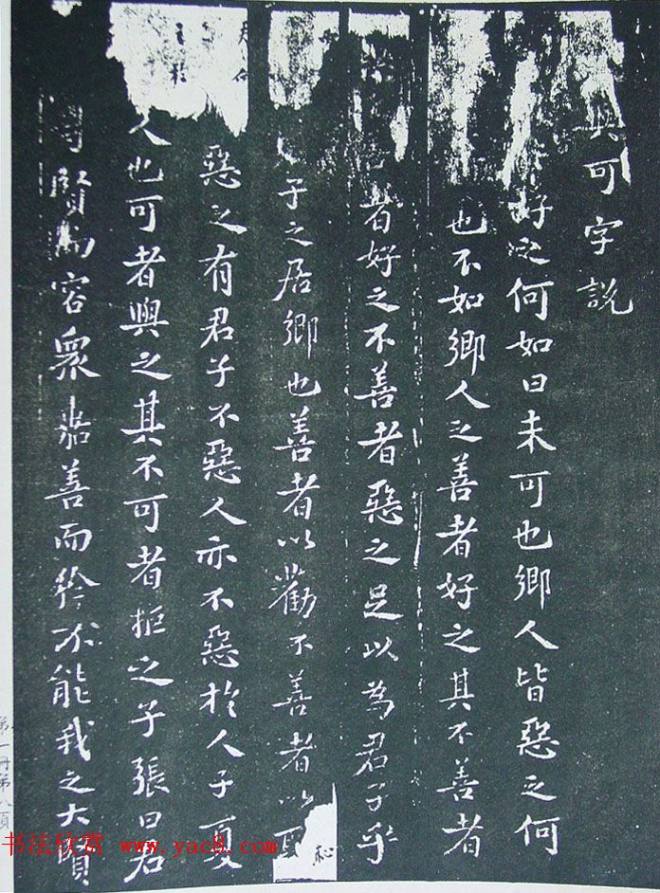 與可字說
好之何如曰未可也鄉人皆惡之何
也不如鄉人之善者好之其不善者
者好之不善者惡之足以為君子乎
子之居鄉也善者以勸不善者以恥
夫何惡之有君子不惡人亦不惡於人子夏
之於人也可者與之其不可者拒之子張曰君
賢而容眾嘉善而矜不能我之大賢
第一冊第八頁
书法欣赏 www.yac8.com